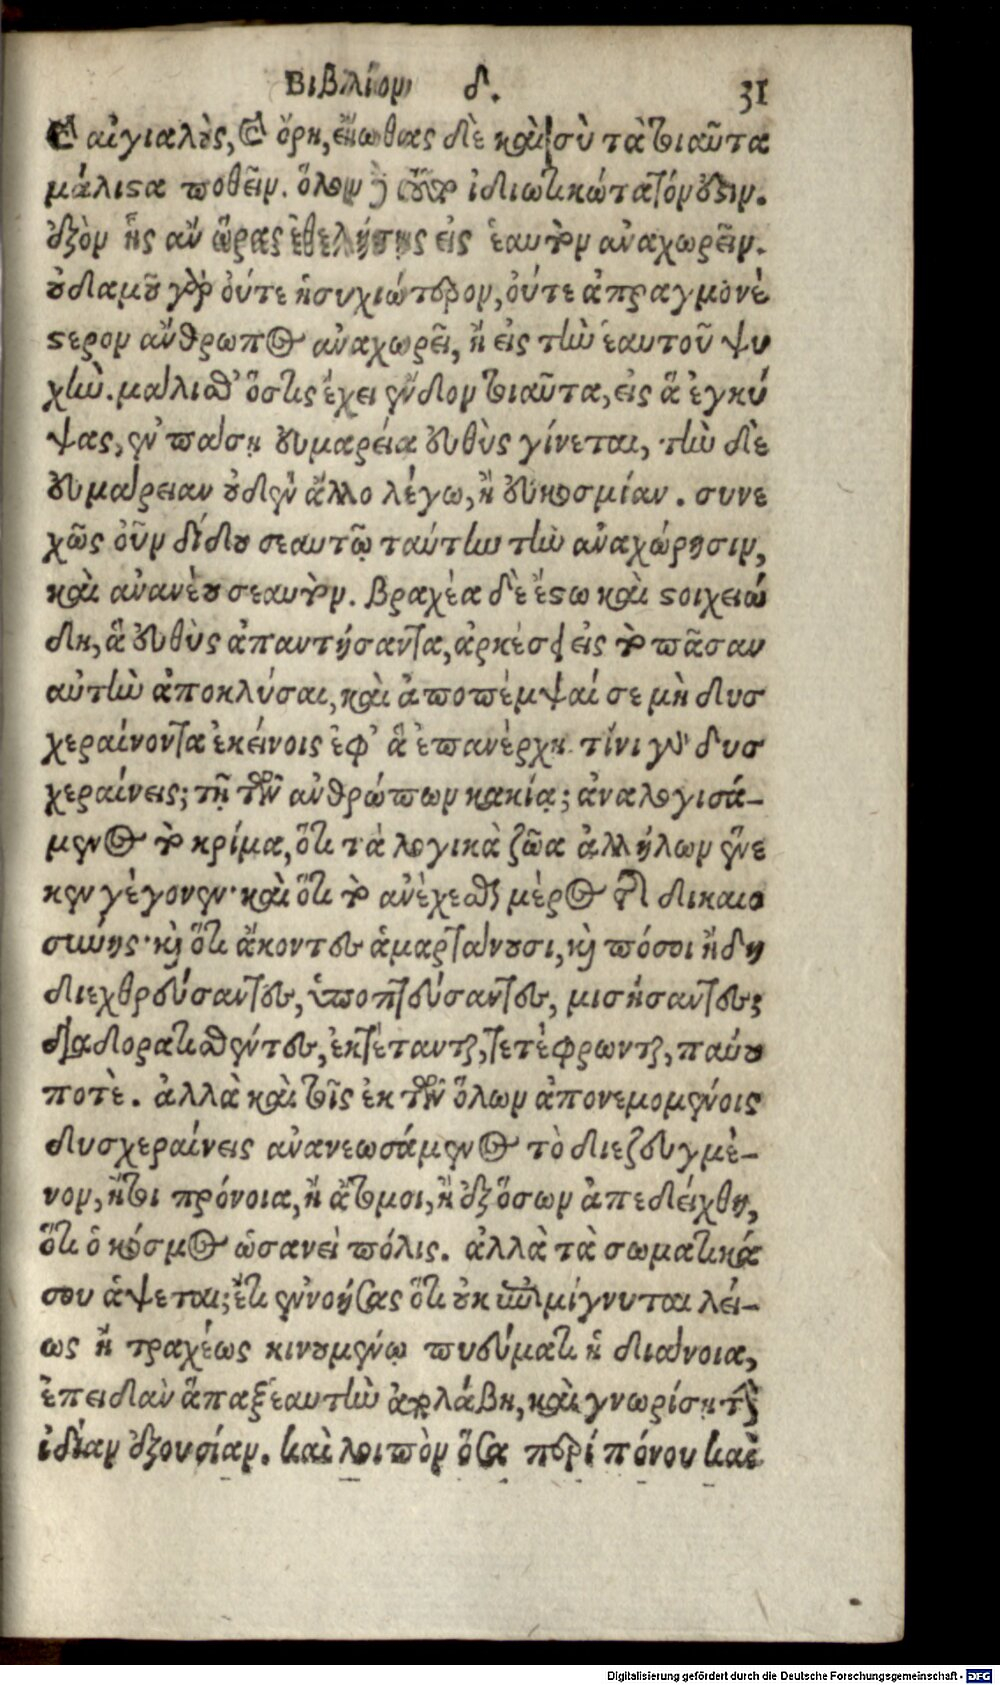 Βιβλίον δ. 31
καὶ αἰγιαλοὺς, καὶ ὄρη, εἴωθας δὲ καὶ σὺ τὰ τοιαῦτα
μάλιστα ποθεῖν. ὅλον δὲ τοῦτο ἰδιωτικώτατόν ἐστιν.
ἐξὸν ἧς ἂν ὥρας ἐθελήσῃς εἰς ἑαυτὸν ἀναχωρεῖν.
οὐδαμοῦ γὰρ οὔτε ἡσυχιώτερον, οὔτε ἀπραγμονέ
στερον ἄνθρωπος ἀναχωρεῖ, ἢ εἰς τὴν ἑαυτοῦ ψυ
χὴν. μάλισθ' ὅστις ἔχει ἔνδον τοιαῦτα, εἰς ἃ ἐγκύ
ψας, ἐν πάσῃ εὐμαρείᾳ εὐθὺς γίνεται, τὴν δὲ
εὐμάρειαν οὐδὲν ἄλλο λέγω, ἢ εὐκοσμίαν. συνε
χῶς οὖν δίδου σεαυτῷ ταύτην τὴν ἀναχώρησιν,
καὶ ἀνανέου σεαυτὸν. βραχέα δὲ ἔστω καὶ στοιχειώ
δη, ἃ εὐθὺς ἀπαντήσαντα, ἀρκέσει εἰς τὸ πᾶσαν
αὐτὴν ἀποκλύσαι, καὶ ἀποπέμψαί σε μὴ δυσ
χεραίνοντα ἐκείνοις ἐφ' ἃ ἐπανέρχῃ. τίνι γὰρ δυσ
χεραίνεις; τῇ τῶν ἀνθρώπων κακίᾳ; ἀναλογισά-
μενος τὸ κρίμα, ὅτι τὰ λογικὰ ζῶα ἀλλήλων ἕνε
κεν γέγονεν· καὶ ὅτι τὸ ἀνέχεσθαι μέρος τῆς δικαιο
σύνης· καὶ ὅτι ἄκοντες ἁμαρτάνουσι, καὶ πόσοι ἤδη
διεχθρεύσαντες, ὑποπτεύσαντες, μισήσαντες
διαδορατισθέντες, ἐκτέτανται, τετέφρωνται, παύου
ποτὲ. ἀλλὰ καὶ τοῖς ἐκ τῶν ὅλων ἀπονεμομένοις
δυσχεραίνεις ἀνανεωσάμενος τὸ διεζευγμέ-
νον, ἤτοι πρόνοια, ἢ ἄτομοι, ἢ ἐξ ὅσων ἀπεδείχθη,
ὅτι ὁ κόσμος ὡσανεὶ πόλις. ἀλλὰ τὰ σωματικά
σου ἅψεται; ἔτι ἐννοήσας ὅτι οὐκ ἐπιμίγνυται λεί-
ως ἢ τραχέως κινουμένῳ πνεύματι ἡ διάνοια,
ἐπειδὰν ἅπαξ ἑαυτὴν ἀπολάβῃ, καὶ γνωρίσῃ τὴν
ἰδίαν ἐξουσίαν. καὶ λοιπὸν ὅσα περὶ πόνου καὶ
Digitalisierung gefördert durch die Deutsche Forschungsgemeinschaft - DFG